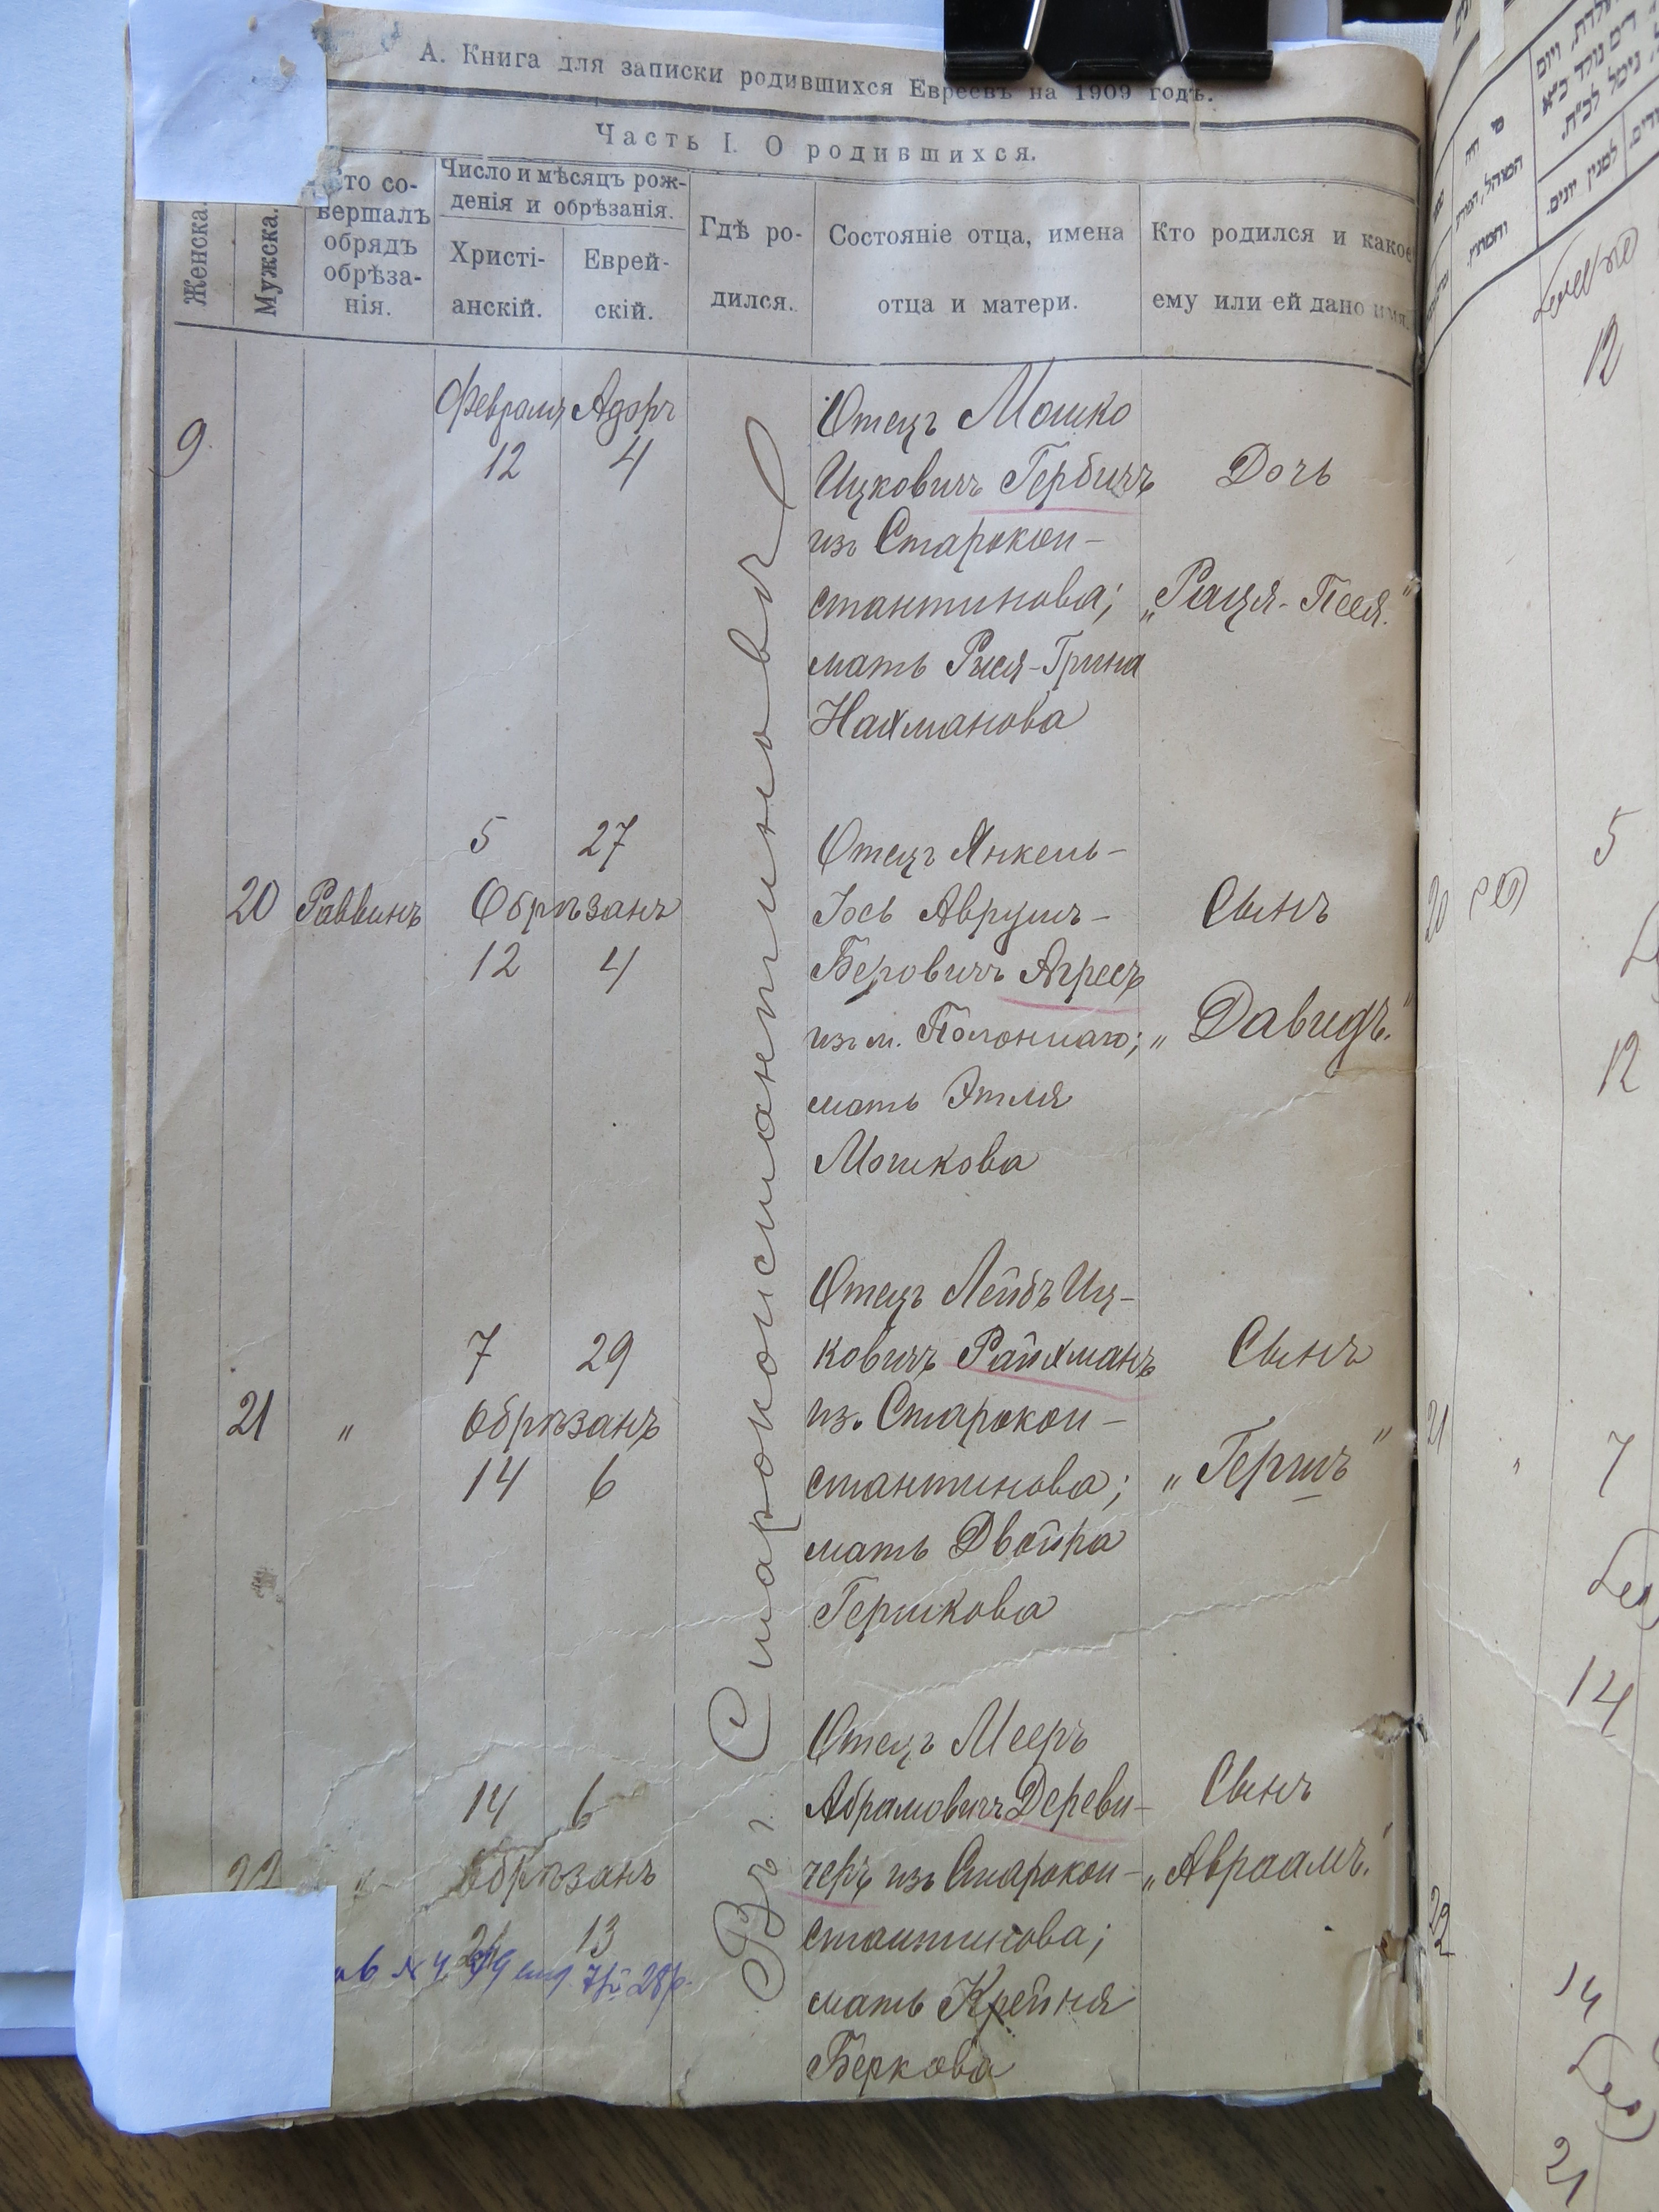 А. Книга для записки родившихся Евреевъ на 1909 годъ.
Часть I. О родившихся.
Женска.
Мужска.
Кто со-
вершалъ
обрядъ
обрѣза-
нія.
Число и мѣсяцъ рож-
денія и обрѣзанія.
Христі-
анскій.
Еврей-
скій.
Гдѣ ро-
дился.
Состояніе отца, имена
отца и матери.
Кто родился и какое
ему или ей дано имя.
Въ г. Староконстантиновѣ
9
Февраль Адаръ
12 4
Отецъ Мошко
Ицковичъ Гербичъ
изъ Старокон-
стантинова;
мать Рися-Грина
Нахманова
Дочь
„Рация-Песя."
20 Раввинъ
5 27
Обрѣзанъ
12 4
Отецъ Янкель-
Іось Аврумъ-
Беровичъ Агресъ
изъ м. Полоннаго;
мать Этля
Мошкова
Сынъ
„Давидъ."
21 „
7 29
Обрѣзанъ
14 6
Отецъ Лейбъ Иц-
ковичъ Райхманъ
из. Старокон-
стантинова;
мать Двойра
Гершкова
Сынъ
„Гершъ"
22 „
14 6
Обрѣзанъ
21 13
Отецъ Мееръ
Абрамовичъ Дереви-
черъ изъ Старокон-
стантинова;
мать Крейня
Беркова
Сынъ
„Авраамъ."
12
20
5
12
21
„
7
14
22
14
21